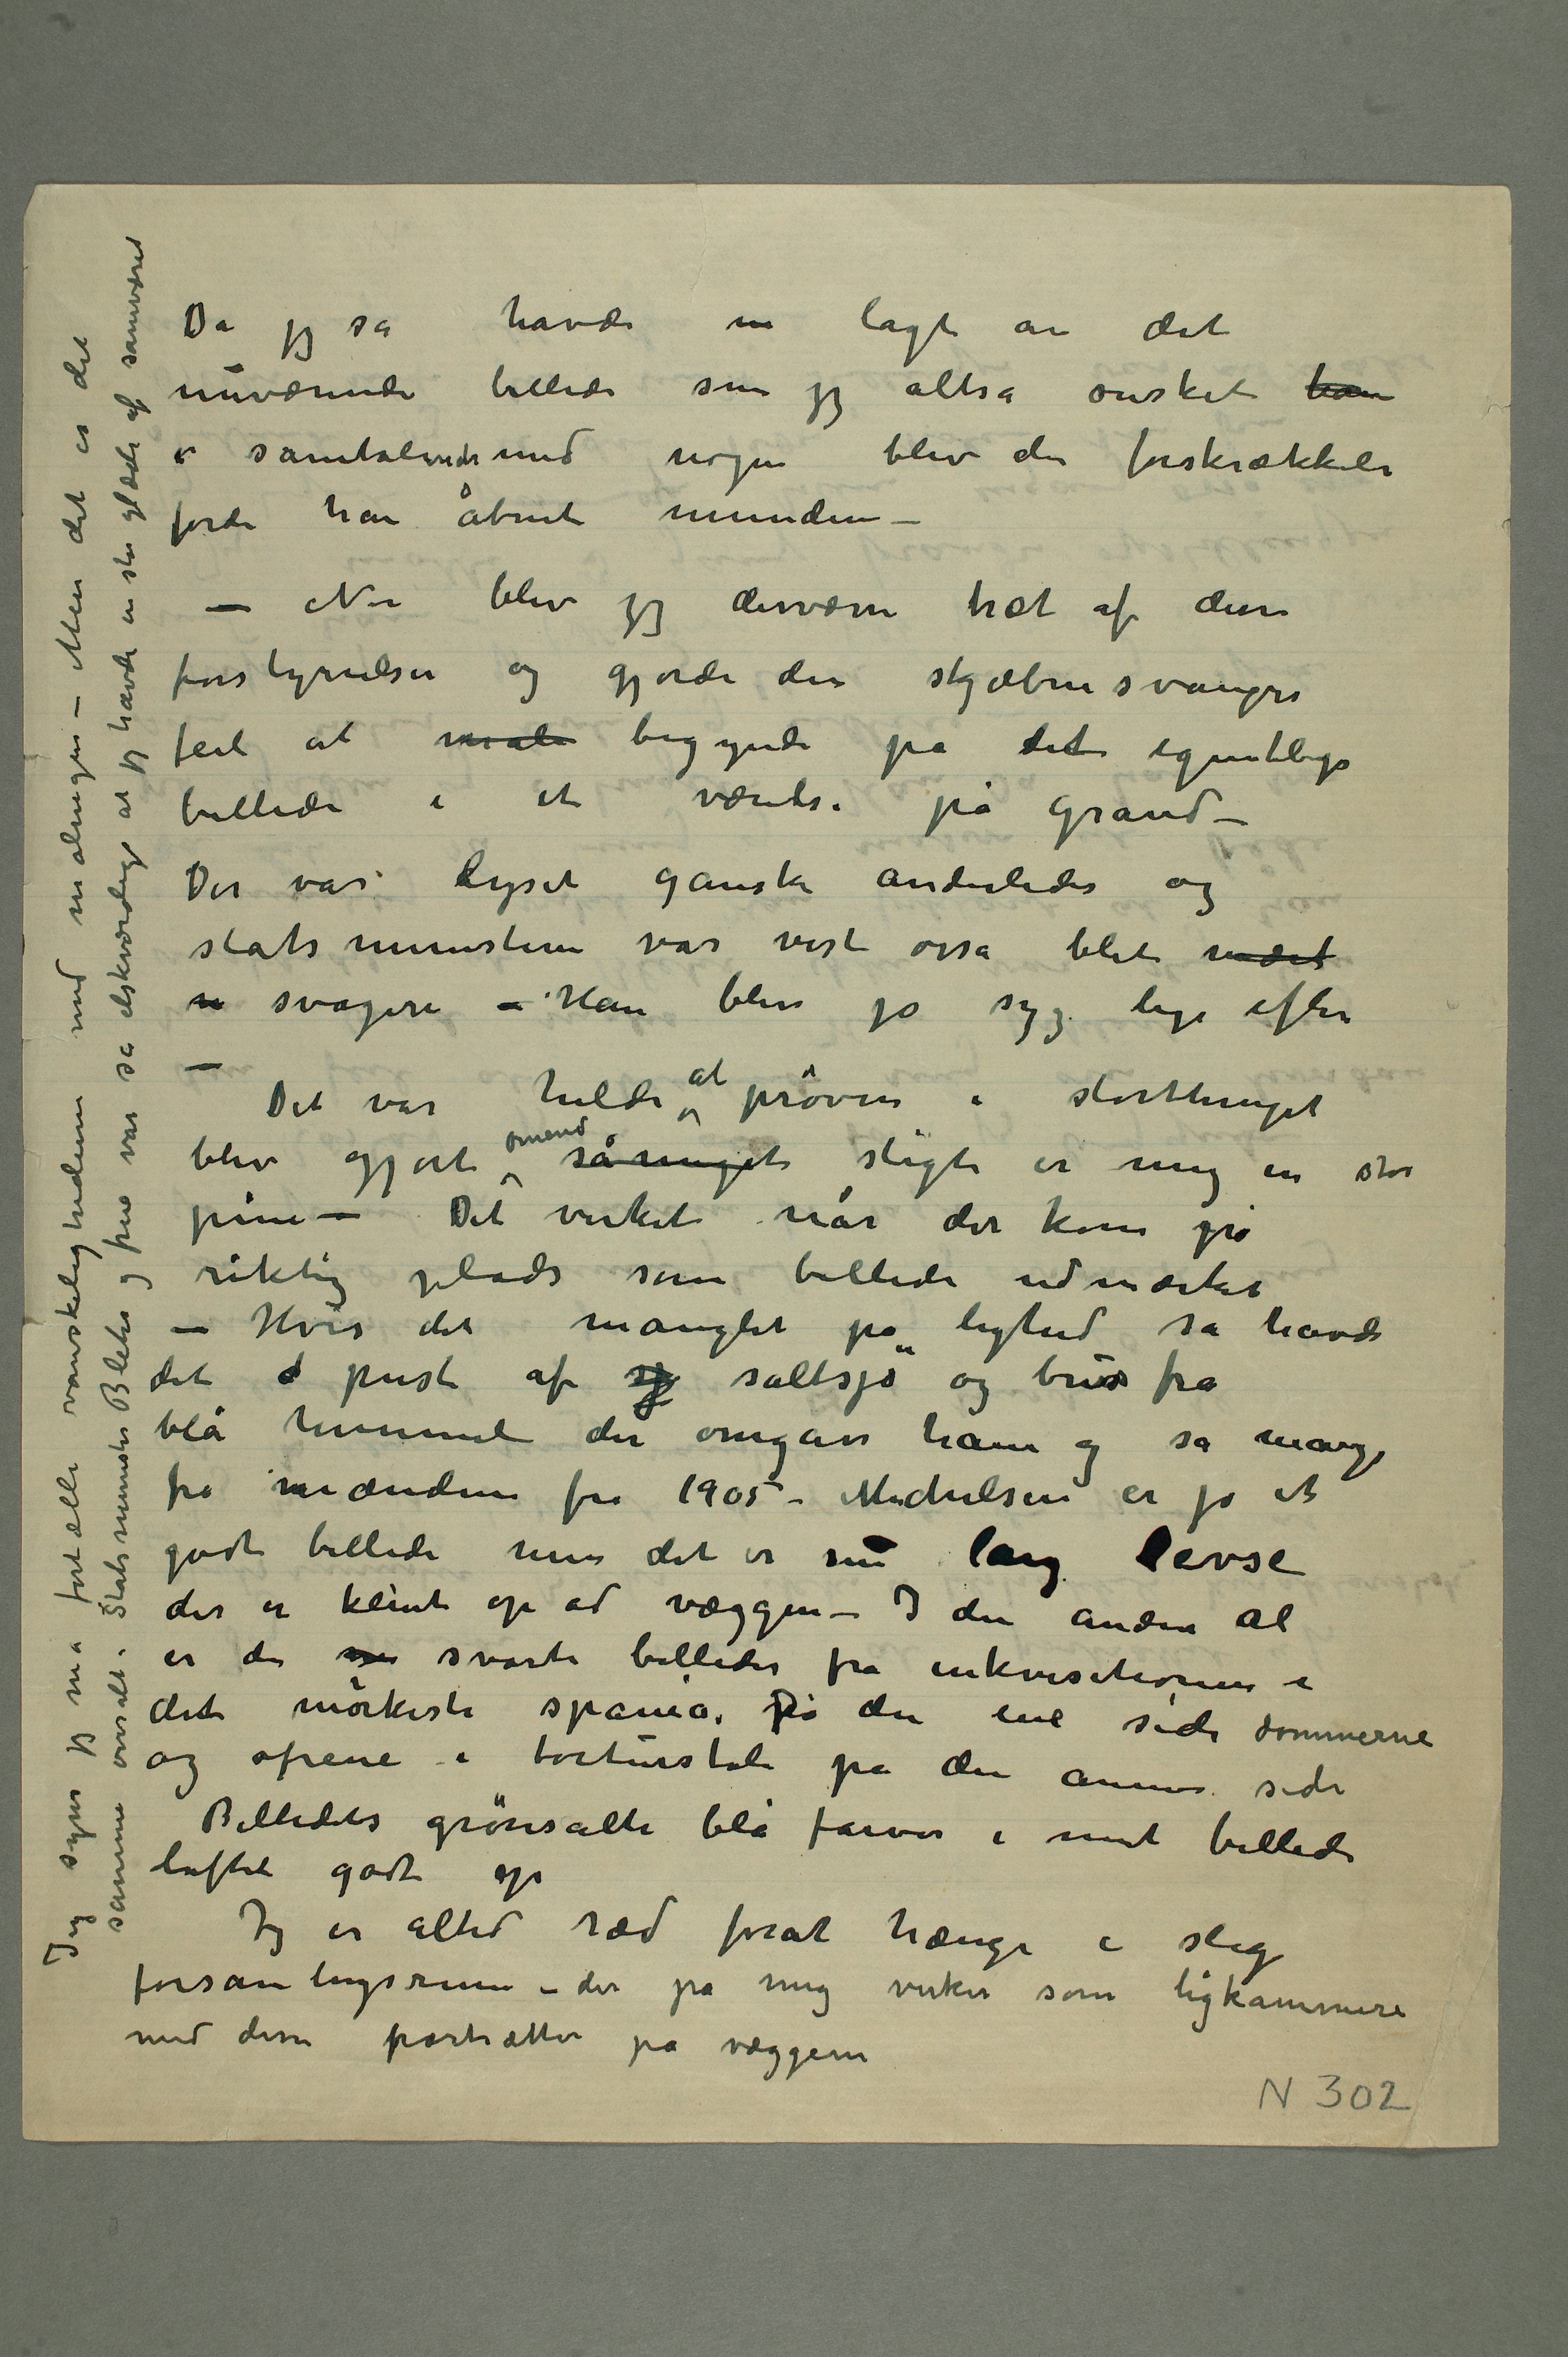 Da jeg så havde lagt an det
nuværende billede som jeg altså ønsket ham
i samtalende med nogen blev der forskrækkelse
fordi han åbnet munden –
– Nu blev jeg desværre træt af disse
forstyrrelser og gjorde den skjæbnesvangre
feil at male begynde på det egentlige
billede i et værelse på Grand –
Der var lyset ganske anderledes og
statsministeren var vist også blet
svagere – Han blev jo syg lige efter
–
Det var heldig at prøven i storthinget
blev gjort omend så meget sligt er mig en stor
pine – Det virket når det kom på
riktig plads som billede udmærket
– Hvis det manglet på lighed så havde
det pust af sj saltsjø og brus fra
blå himmel der omgav ham og så mange
fra mændene fra 1905 – Michelsen er jo et
godt billede men det er en lang levse
der er klint op ad væggen – I den anden al
er der svarte billeder fra inkvisitionen i
det mørkeste spania. På den ene side dommerne
og ofrene i torturstole på den annen side
Billedets grønsalte blå farver i mit billede
luftet godt op
Jeg er altid ræd forat hænge i slige
forsamlingsrum – der på mig virker som ligkammere
med disse portrætter på væggene
Jeg synes jeg må fortælle vanskelighederne med malingen – Men det er det
samme overalt. Statsminister Blehr og frue var så elskværdige at jeg havde en stor glæde af samværet
N 302